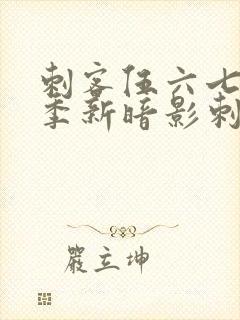 刺客伍六七
季新暗影刺
嚴立坤